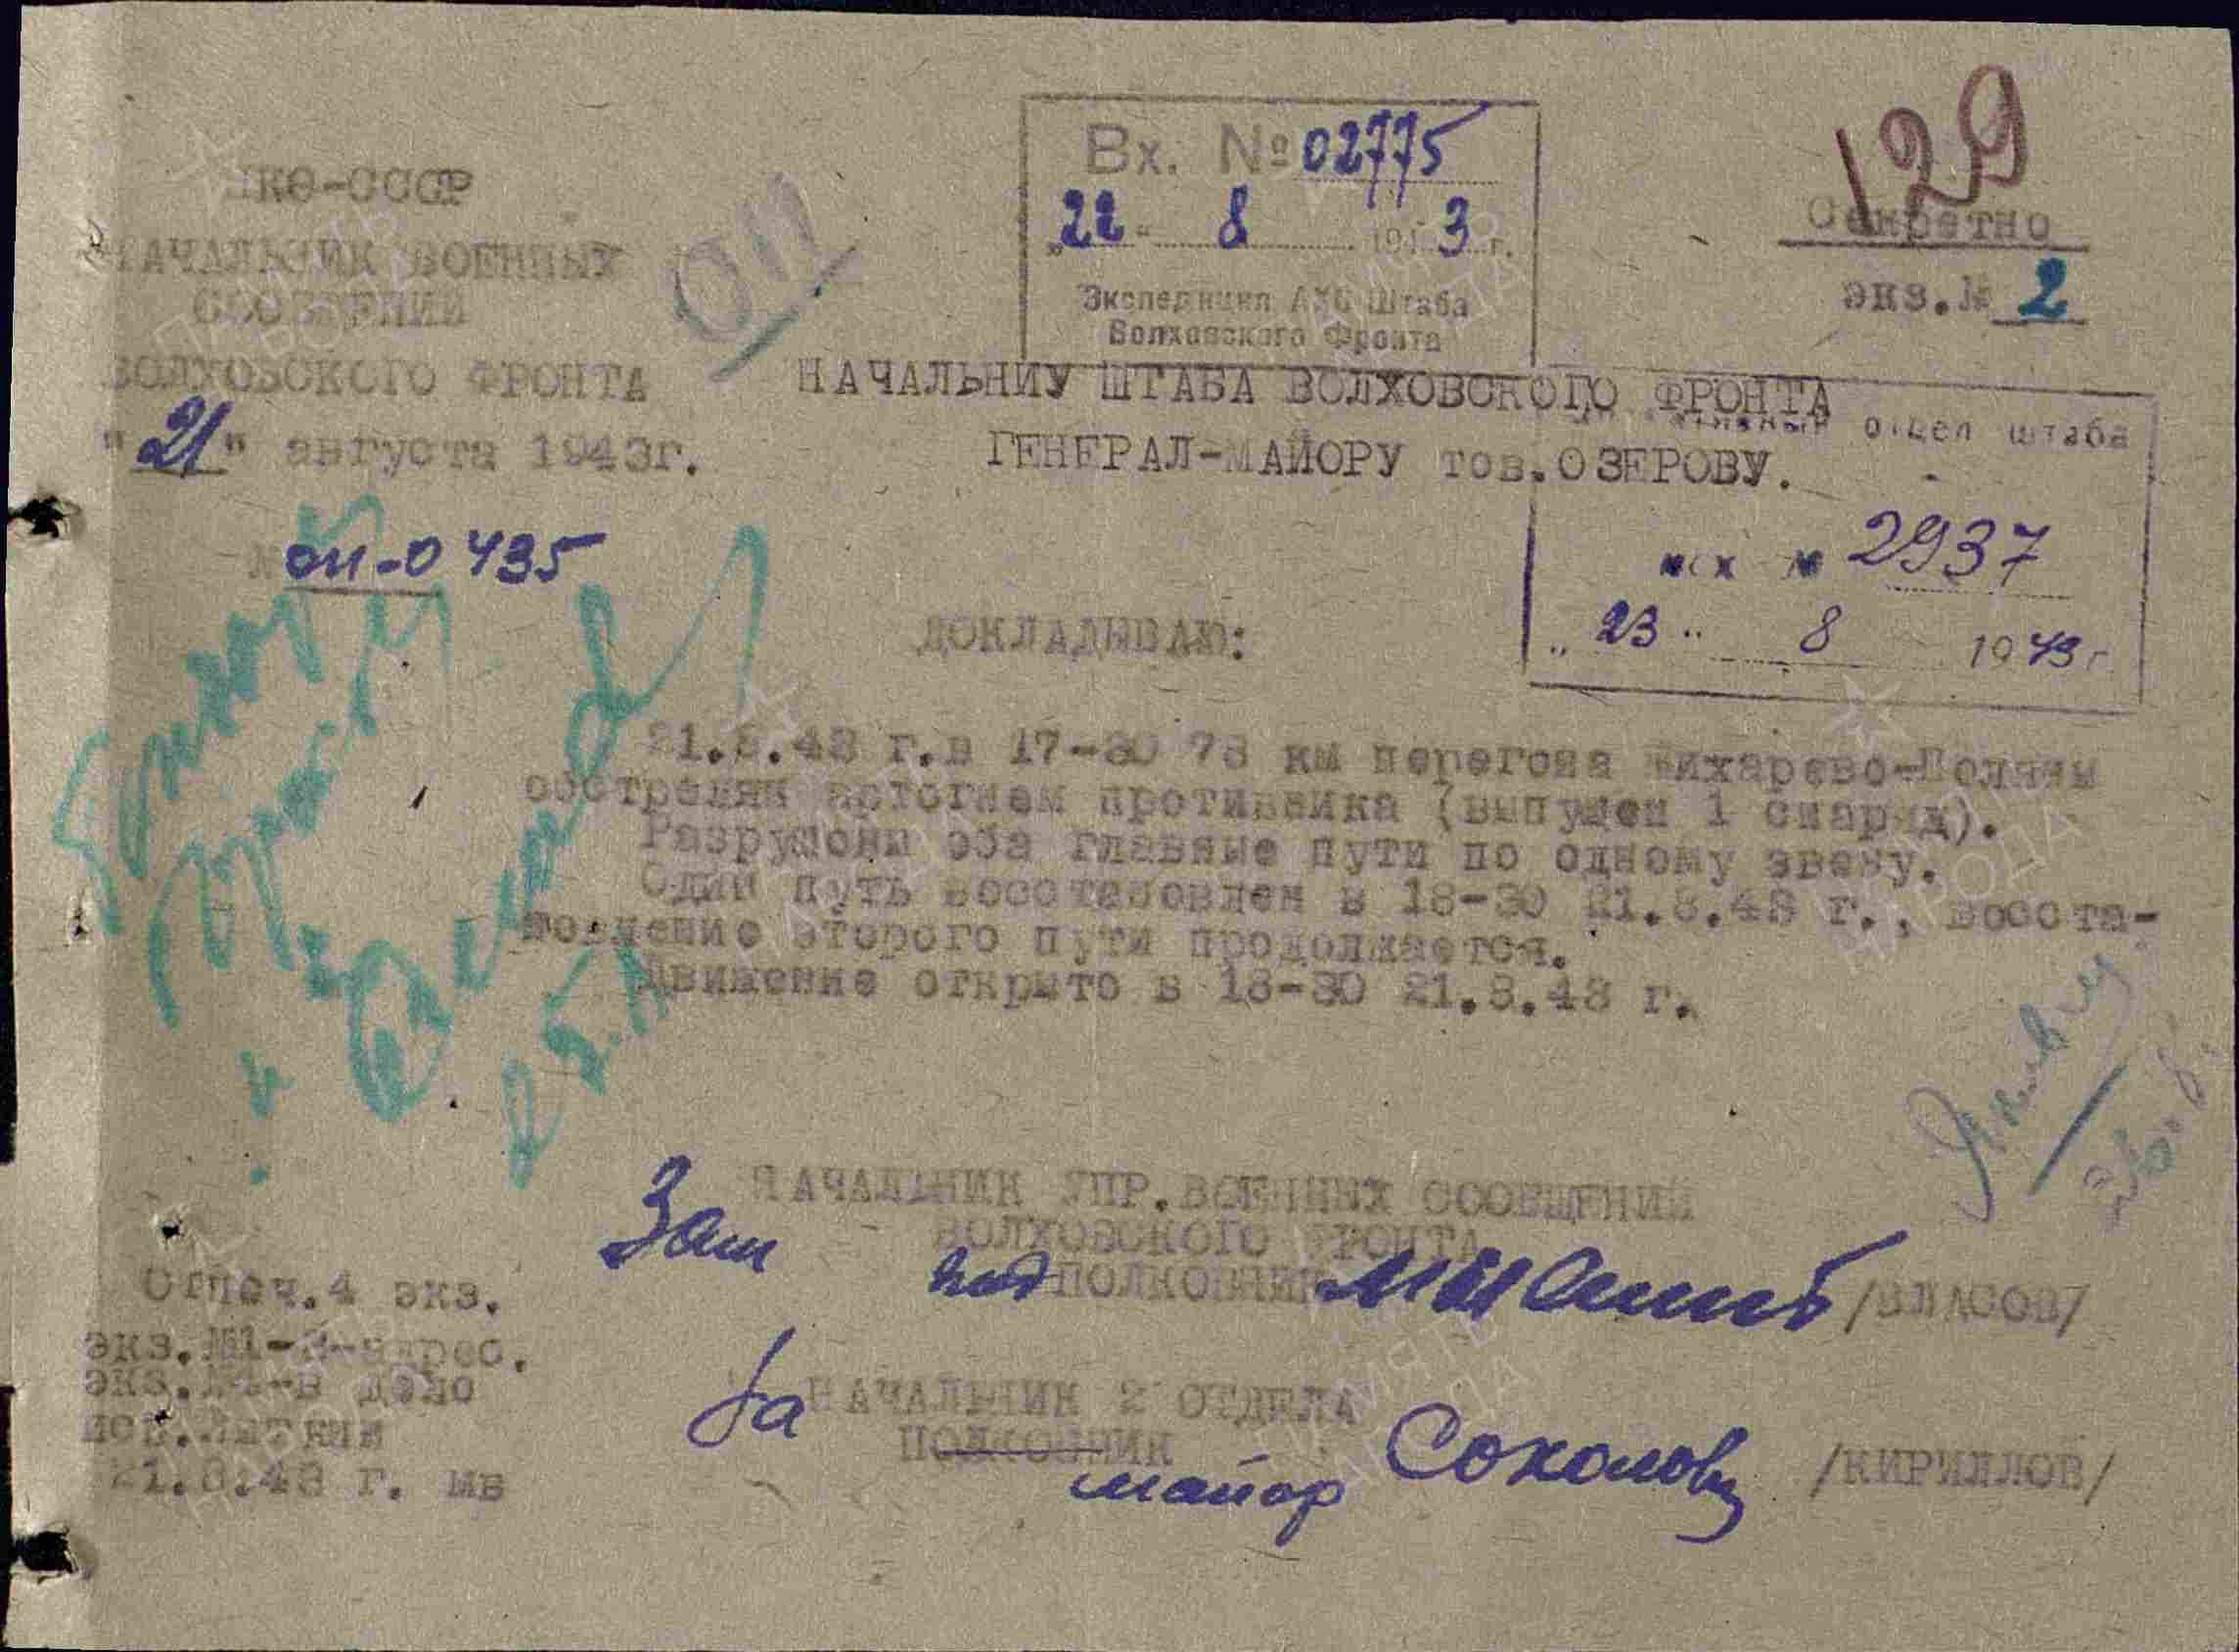 129
Вх. № 02775
"22" 8 1943 г.
Экспедиция АХО Штаба
Волховского Фронта
Секретно
экз.№ 2
НКО-СССР
НАЧАЛЬНИК ВОЕННЫХ
СООБЩЕНИЙ
ВОЛХОВСКОГО ФРОНТА
"21" августа 1943г.
№ оп-0435
НАЧАЛЬНИУ ШТАБА ВОЛХОВСКОГО ФРОНТА
ГЕНЕРАЛ-МАЙОРУ тов.ОЗЕРОВУ.
отдел штаба
№ 2937
"23" 8 1943 г
ДОКЛАДЫВАЮ:
21.8.43 г.в 17-30 78 км перегона Жихарево-Поляны
обстрелян артогнем противника (выпущен 1 снаряд).
Разрушены оба главные пути по одному звену.
Один путь восстановлен в 18-30 21.8.43 г., восста-
новление второго пути продолжается.
Движение открыто в 18-30 21.8.43 г.
Зам НАЧАЛЬНИК УПР.ВОЕННЫХ СООБЩЕНИЙ
ВОЛХОВСКОГО ФРОНТА
под ПОЛКОВНИК /ВЛАСОВ/
За НАЧАЛЬНИК 2 ОТДЕЛА
ПОЛКОВНИК
майор Соколов /КИРИЛЛОВ/
Отпеч.4 экз.
экз.№1-3-адрес.
экз.№4-в дело
21.8.43 г. мв